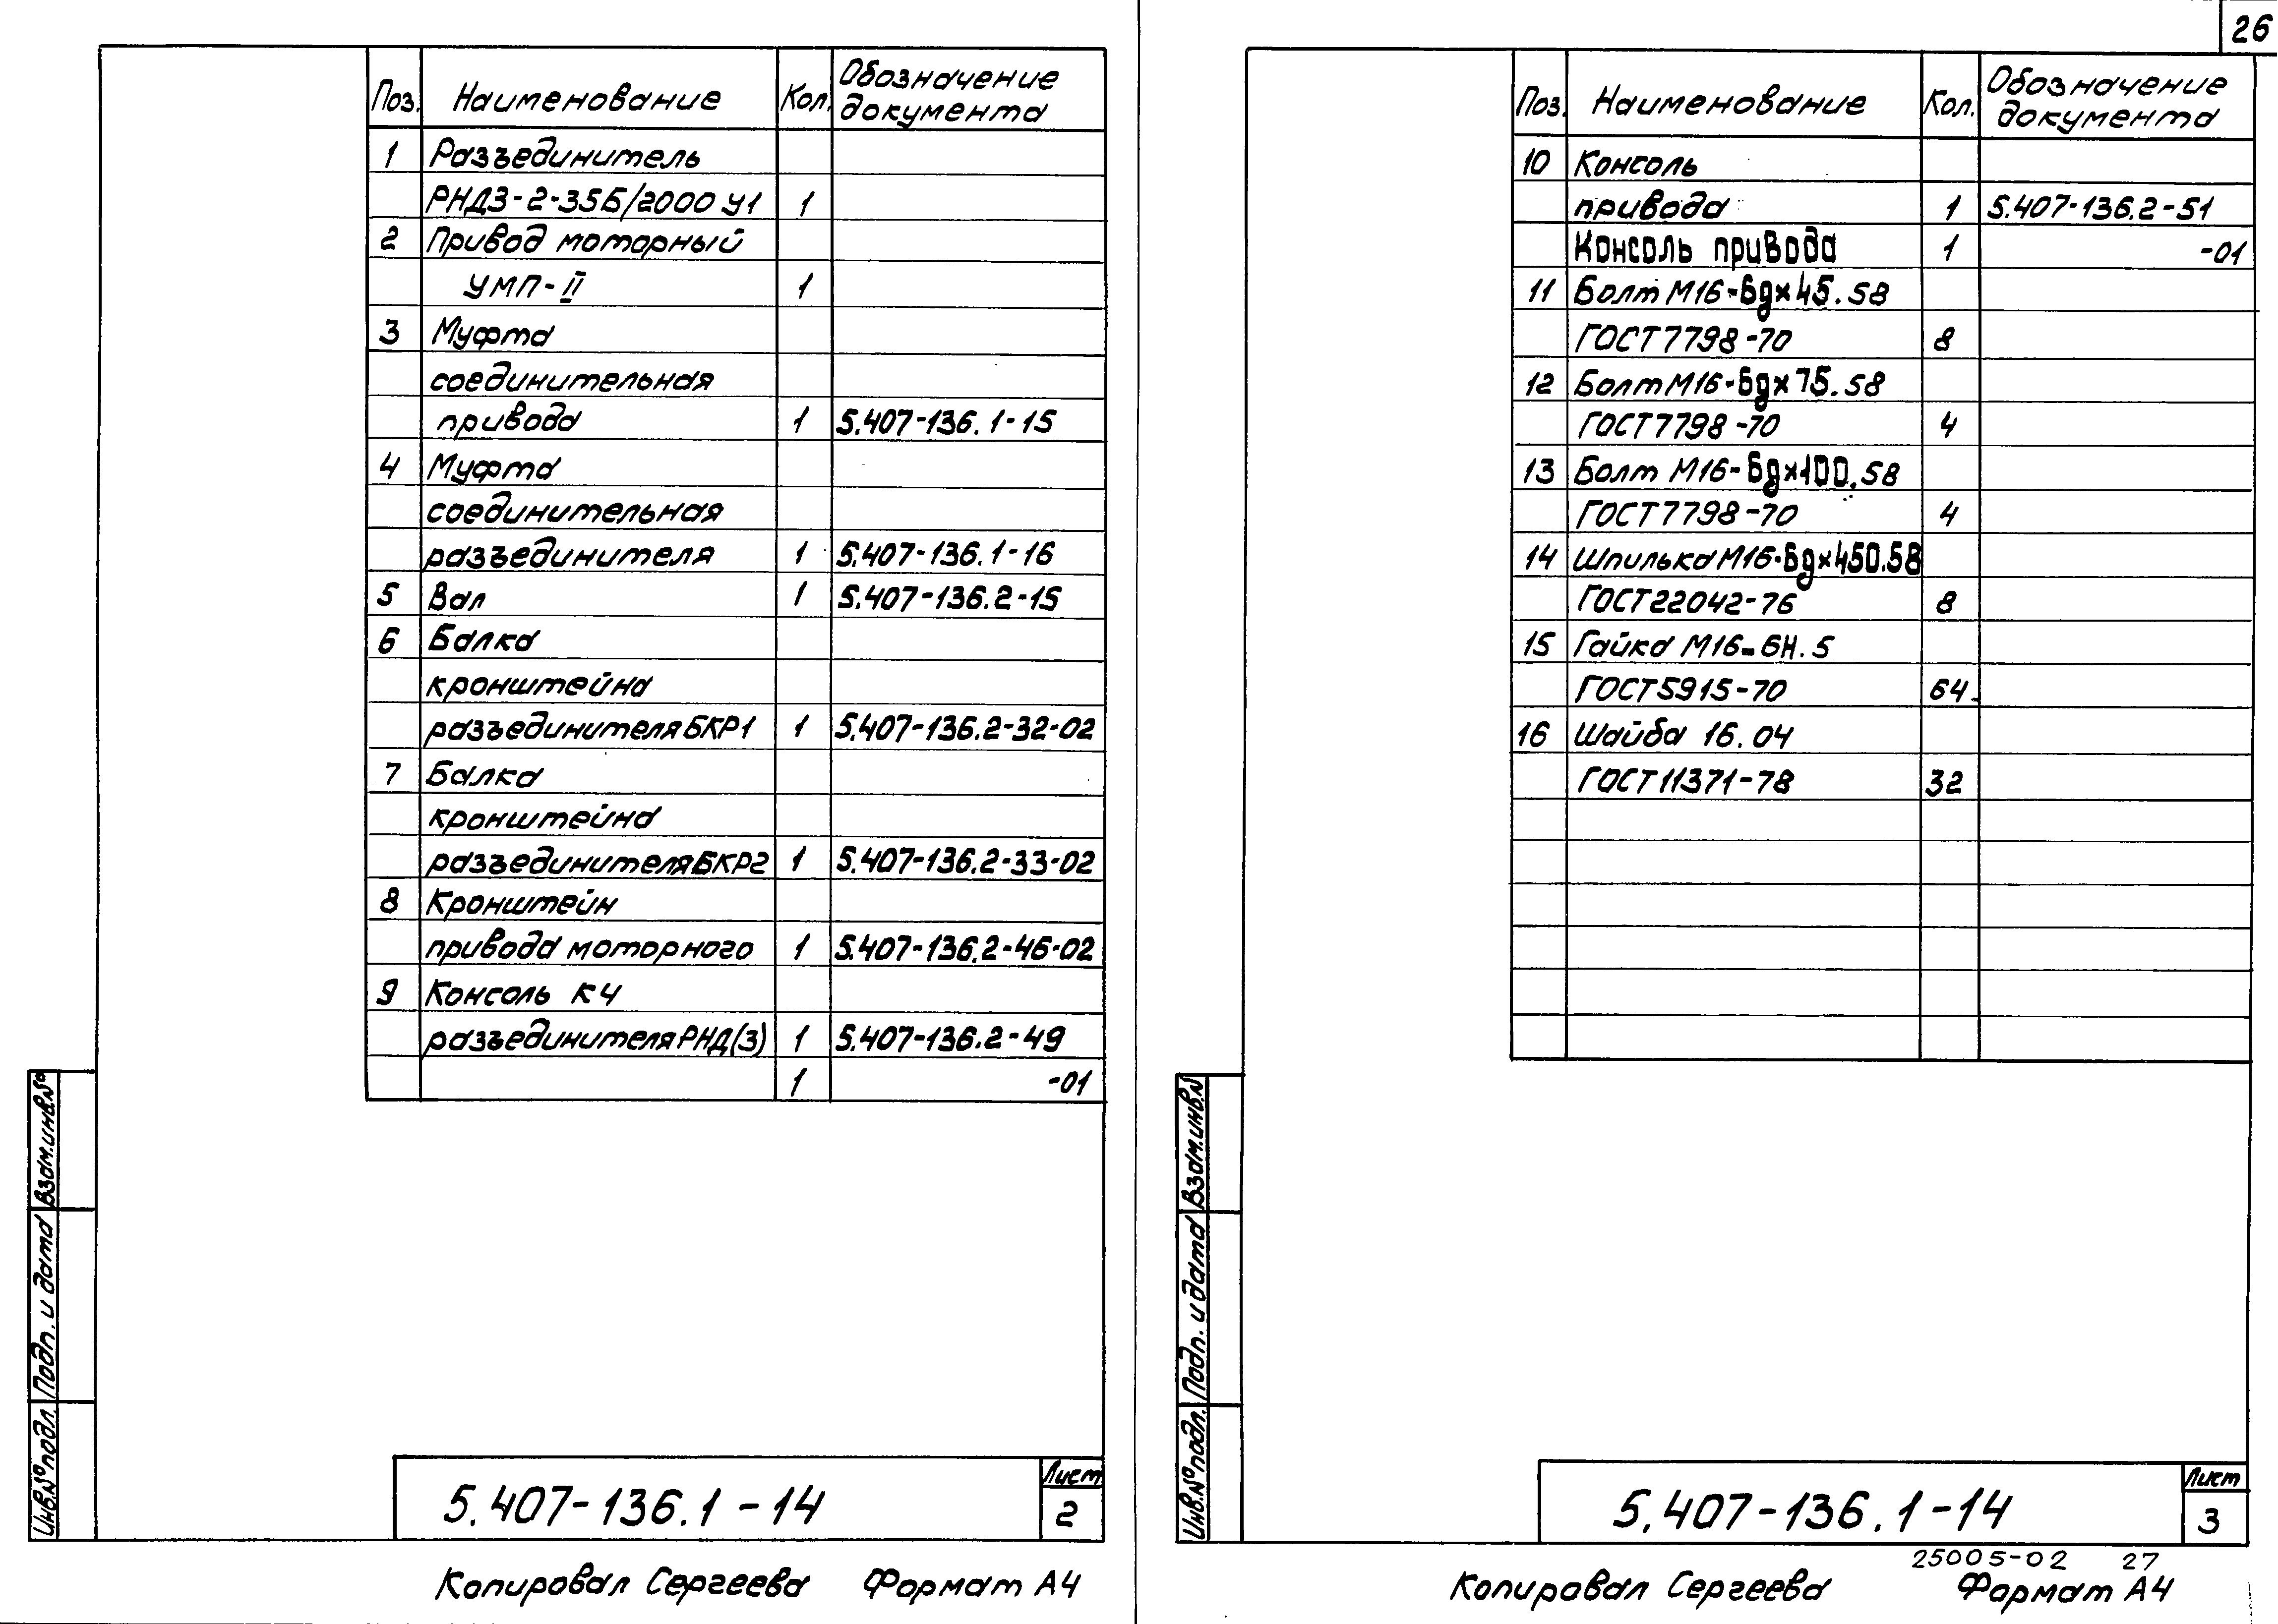 Поз. Наименование Кол. Обозначение документа
1 Разъединитель
РНДЗ-2-35Б/2000 У1 1
2 Привод моторный
УМП-II 1
3 Муфта
соединительная
привода 1 5.407-136.1-15
4 Муфта
соединительная
разъединителя 1 5.407-136.1-16
5 Вал 1 5.407-136.2-15
6 Балка
кронштейна
разъединителя БКР1 1 5.407-136.2-32-02
7 Балка
кронштейна
разъединителя БКР2 1 5.407-136.2-33-02
8 Кронштейн
привода моторного 1 5.407-136.2-46-02
9 Консоль К4
разъединителя РНД(З) 1 5.407-136.2-49
1 -01
Взам.инв.№
Подп. и дата
Инв.№подл.
5.407-136.1-14
Лист
2
Копировал Сергеева Формат А4
26
Поз. Наименование Кол. Обозначение документа
10 Консоль
привода 1 5.407-136.2-51
Консоль привода 1 -01
11 Болт М16-6gх45.58
ГОСТ7798-70 8
12 Болт М16-6gх75.58
ГОСТ7798-70 4
13 Болт М16-6gх100.58
ГОСТ7798-70 4
14 Шпилька М16-6gх450.58
ГОСТ22042-76 8
15 Гайка М16-6Н.5
ГОСТ5915-70 64
16 Шайба 16.04
ГОСТ11371-78 32
Взам.инв.№
Подп. и дата
Инв.№подл.
5.407-136.1-14
Лист
3
25005-02 27
Копировал Сергеева Формат А4